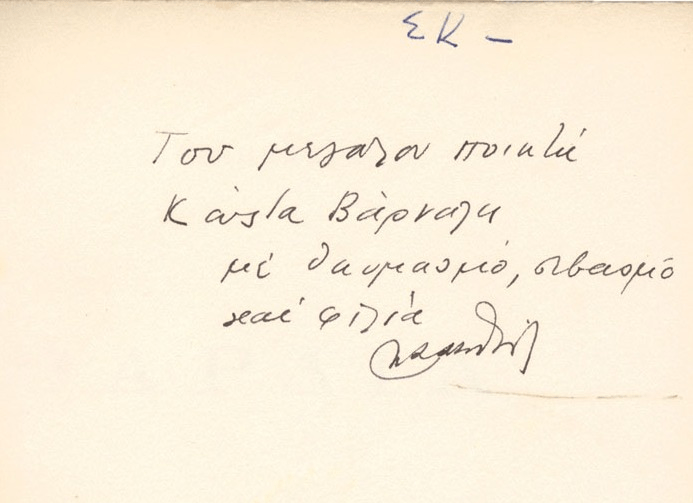 ΣΚ -
Του μεγάλου ποιητή
Κώστα Βάρναλη
με θαυμασμό, σεβασμό
και φιλία